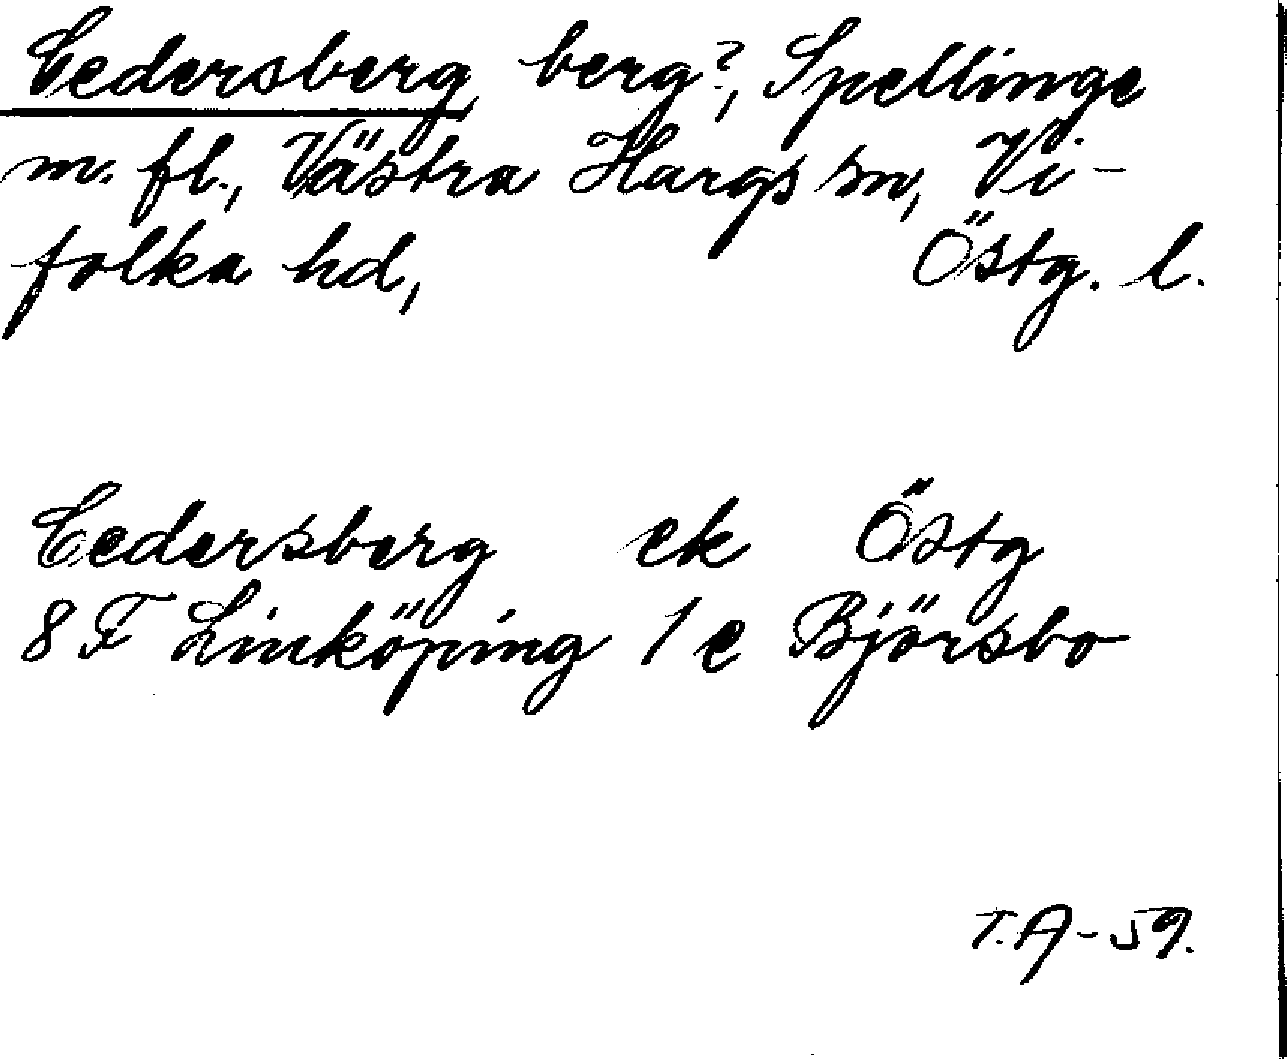 Cedersberg berg?, Spellinge
m. fl., Västra Hargs sn, Vi-
folka hd, Östg. l.
Cedersberg ek Östg
8 F Linköping 1 e Björsbo
T.A-59.